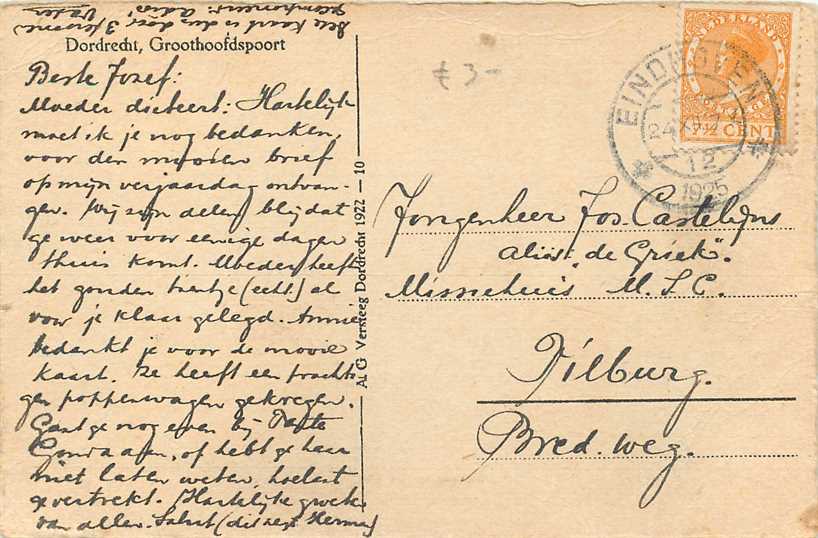 Deze kaart is dus door 3 personen
gecomponeerd. adio!
Vader
Dordrecht, Groothoofdspoort
Beste Jozef:
Moeder dicteert: Hartelijk
moet ik je nog bedanken,
voor den mooien brief
op mijn verjaardag ontvan-
gen. Wij zijn allen blij dat
ge weer voor eenige dagen
thuis komt. Moeder heeft
het gouden tientje (echt!) al
voor je klaar gelegd. Annie
bedankt je voor de mooie
kaart. Ze heeft een pracht-
gen poppenwagen gekregen.
Gaat ge nog even bij Tante
aan, of hebt ge haar
niet laten weten, hoelaat
ge vertrekt. Hartelijke groeten
van allen. Salut (dit zegt Herman)
Al G Versteeg Dordrecht 1922 — 10
€ 3-
NEDERLAND
7½ CENT
EINDHOVEN
24 XII
12
1925
Jongenheer Jos. Castelijns
alias "de Griek".
Missiehuis M.S.C.
Tilburg.
Bred. weg.